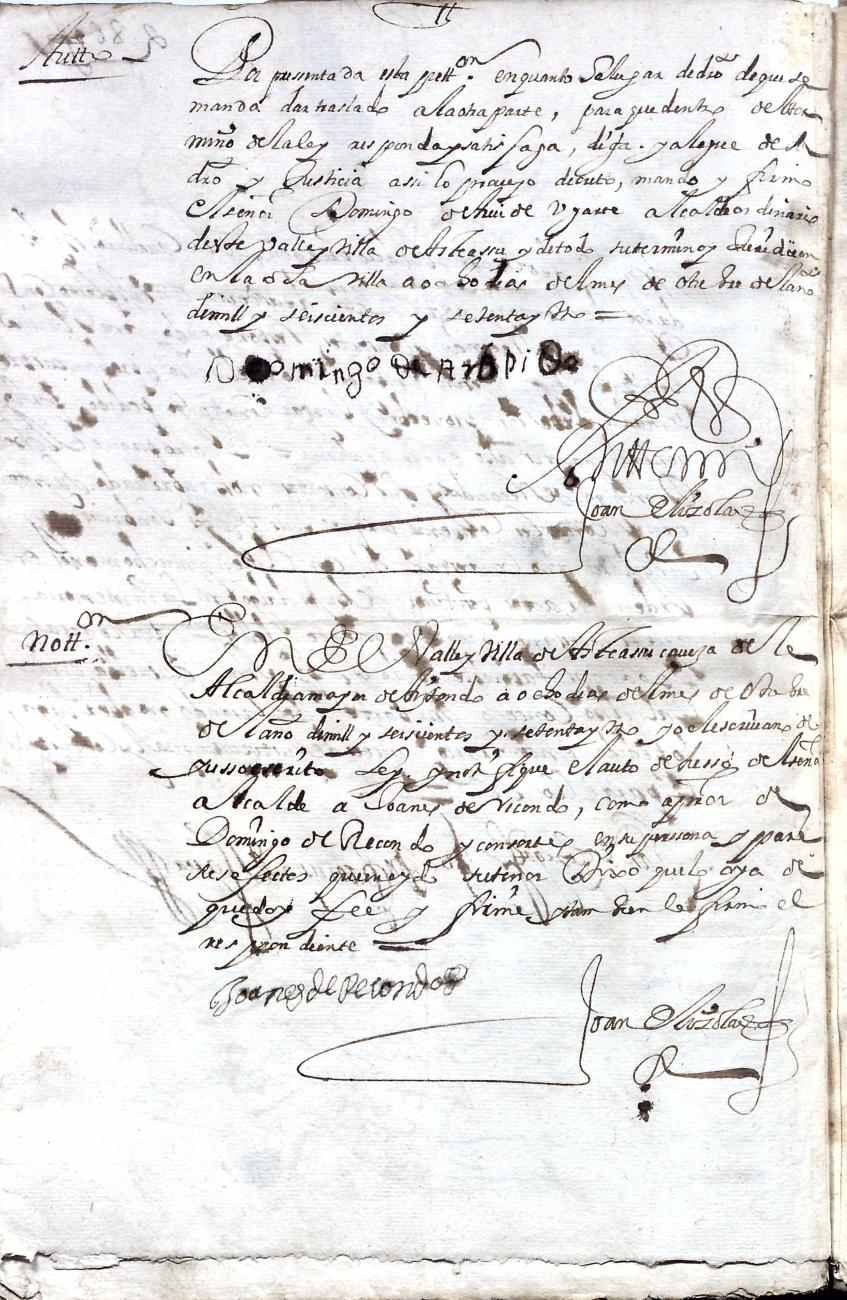 tt
Autto
Por presentada esta pett.on en quanto a lugar de dro de que se
manda dar traslado a la otra parte, para que dentro del ter
mino de la ley responda y satisfaga, diga y alegue de su
dro y Justicia assi lo proveyo decreto, mando y firmo
el señor Domingo de ugarte alcalde ordinario
deste valle y villa de Asteassu y de todo su termino y Juridicion
en la dha villa a ocho dias del mes de otubre del año
de mill y seiscientos y setenta y
Domingo de
Ante mi
Joan Elizalde
Nott.on
En El Valle y Villa de Asteassu caveza de
Alcaldia mayor de Aiztondo a ocho dias del mes de Otubre
del año de mill y seiscientos y setenta y yo el escrivano de
susso escrito Ley y notifique el auto de susso del señor
alcalde a Joanes de Recondo, como a
Domingo de Recondo y consortes en su perssona y para
los efectos que en su tenor Dixo que lo oya de
que doy fee y firme y tambien lo firmo el
respondiente
Joanes de Recondo
Joan Elizalde